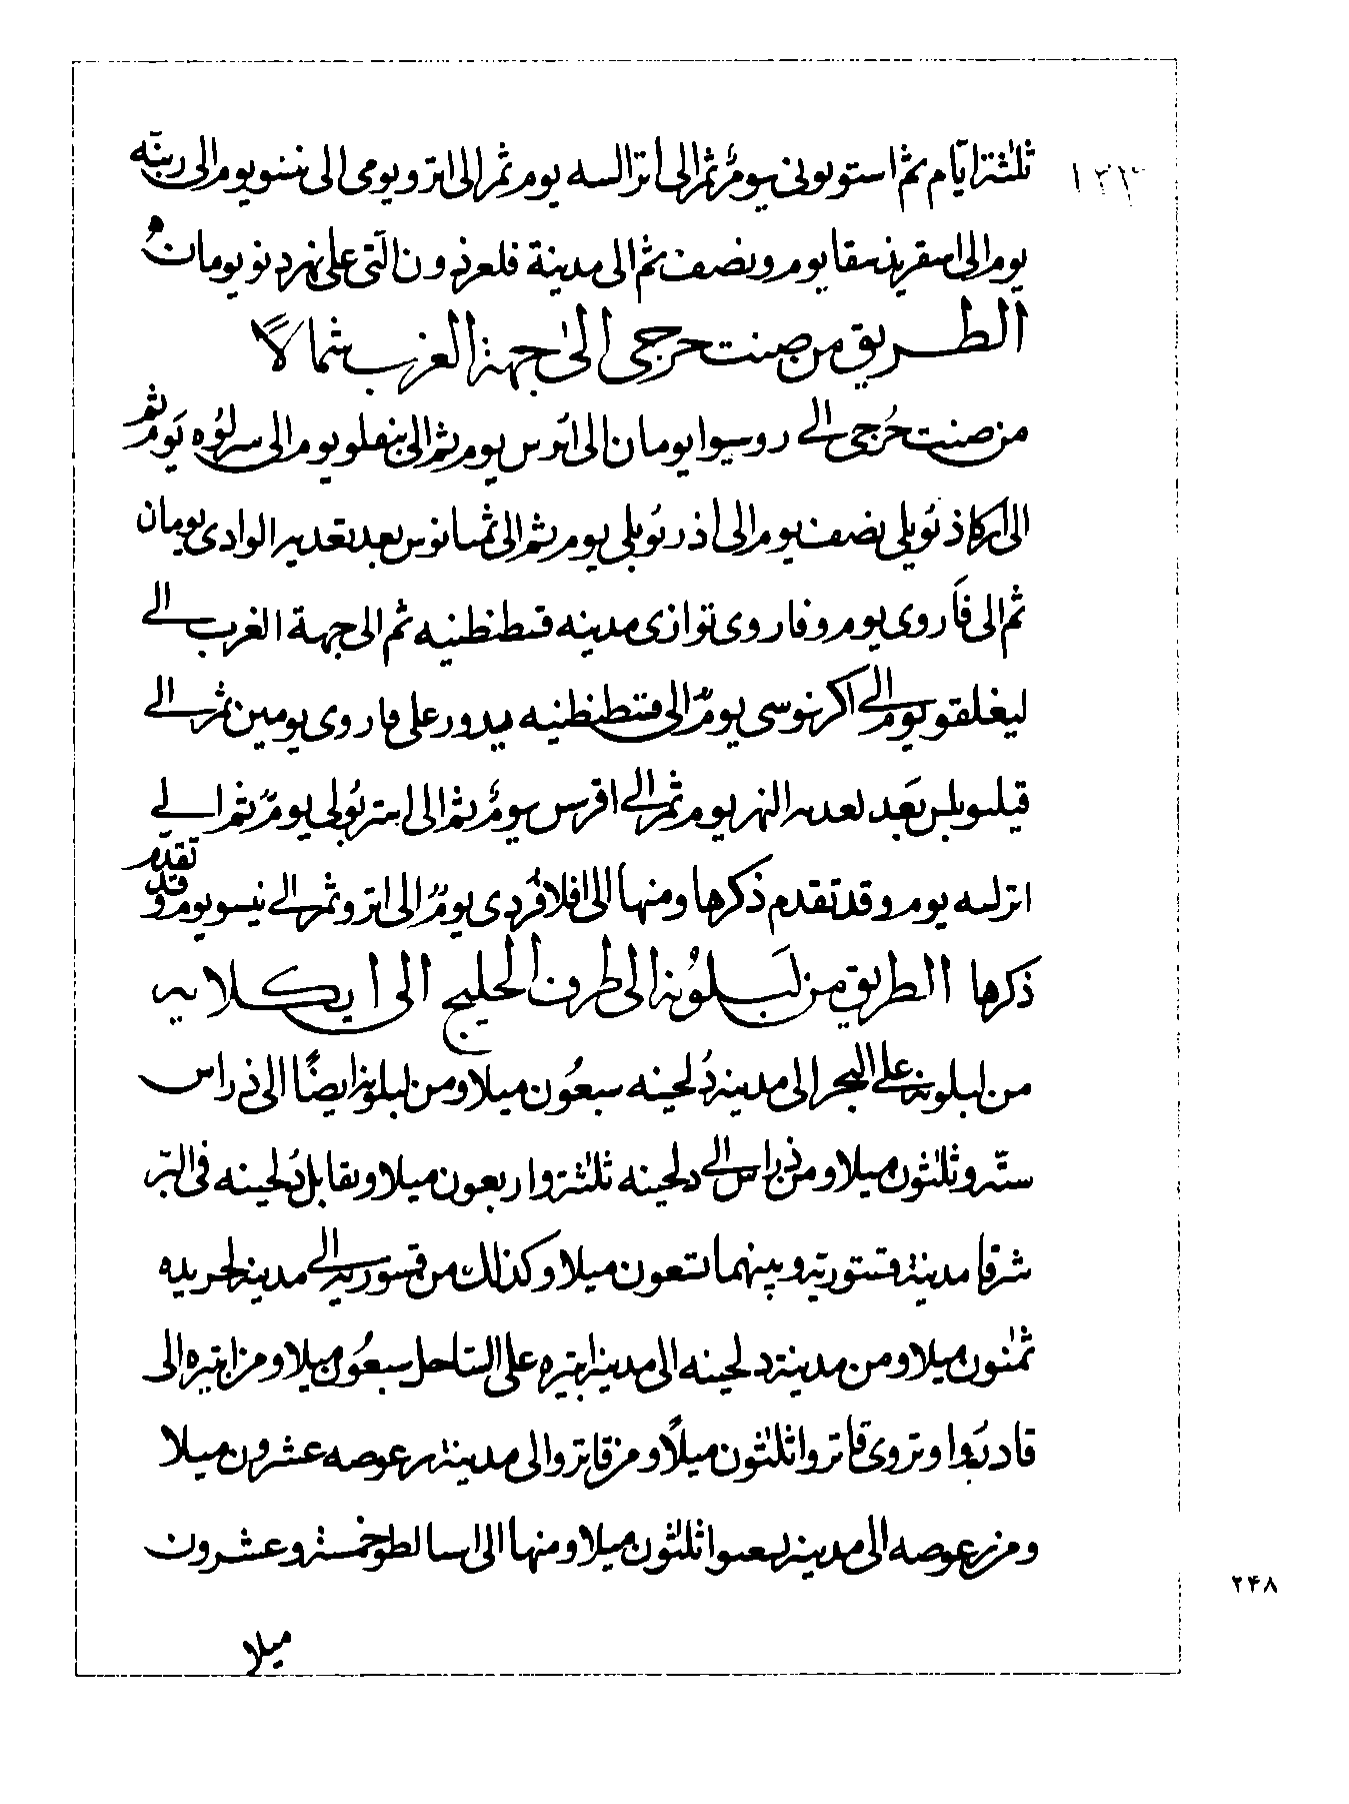 ثلثة ايّام ثم استوبونى يومٌ ثم الى اترالسه يوم ثم الى اترو يومى الى نسو يوم الى رىنّه
يوم الى اسقرىدسقا يوم ونصف ثم الى مدينة فلعرذون الّتى على نهر دنو يومان
الطريق من صنت جرجى الى جهة الغرب شمالًا
من صنت جُرجى الى روسيوا يومان الى ابُرس يوم ثم الى بنفلو يوم الى سرلوُه يَوم ثم
الى اركاذنُوبلى نصف يوم الى اذرنُوبلى يوم ثم الى ثمىانوس بعد تعديه الوادى يومان
ثم الى فاَروى يوم وفاروى توازى مدينه قسطنطنيه ثم الى جهة الغرب الى
ليغلقو يوم الى اكرنوسى يومٌ الى قسطنطنيه يدور على فاروى يومين ثم الى
قيلىوىلس بَعد تعديه النهر يوم ثم الى اقرس يومٌ ثم الى استربُولى يومٌ ثم الى
اترلسه يوم وقد تقدم ذكرها ومنها الى افلاقُردى يومٌ الى اترو ثم الى نيسو يوم وقد تقدّم
ذكرها الطريق من لَبلوُنه الى طرف الخليج الى ايكلاىيه
من لبلونه على البحر الى مدينه دُلجينه سبعُون ميلا ومن لبلونه ايضًا الى ذراس
ستّه وثلثون ميلا ومن ذراس الى دلجينه ثلثة واربعون ميلا ويقابل دُلجينه فى البّر
شرقا مدينة قستوريّه وبينهما تسعون ميلا وكذلك من قسوريه الى مدينه لحرىده
ثمنون ميلا ومن مدينة دلجينه الى مدينه ابتيره على الساحل سبعُون ميلا ومن ابتيره الى
قادرَوا وتروى قاتروا ثلثون ميلًا ومن قاتروا الى مدينة رعوصه عشرون ميلا
ومن رعوصه الى مدينه ىىعىوا ثلثون ميلا ومنها الى اسالطو خمسة وعشرون
ميلا
١٢٣
٢۴٨